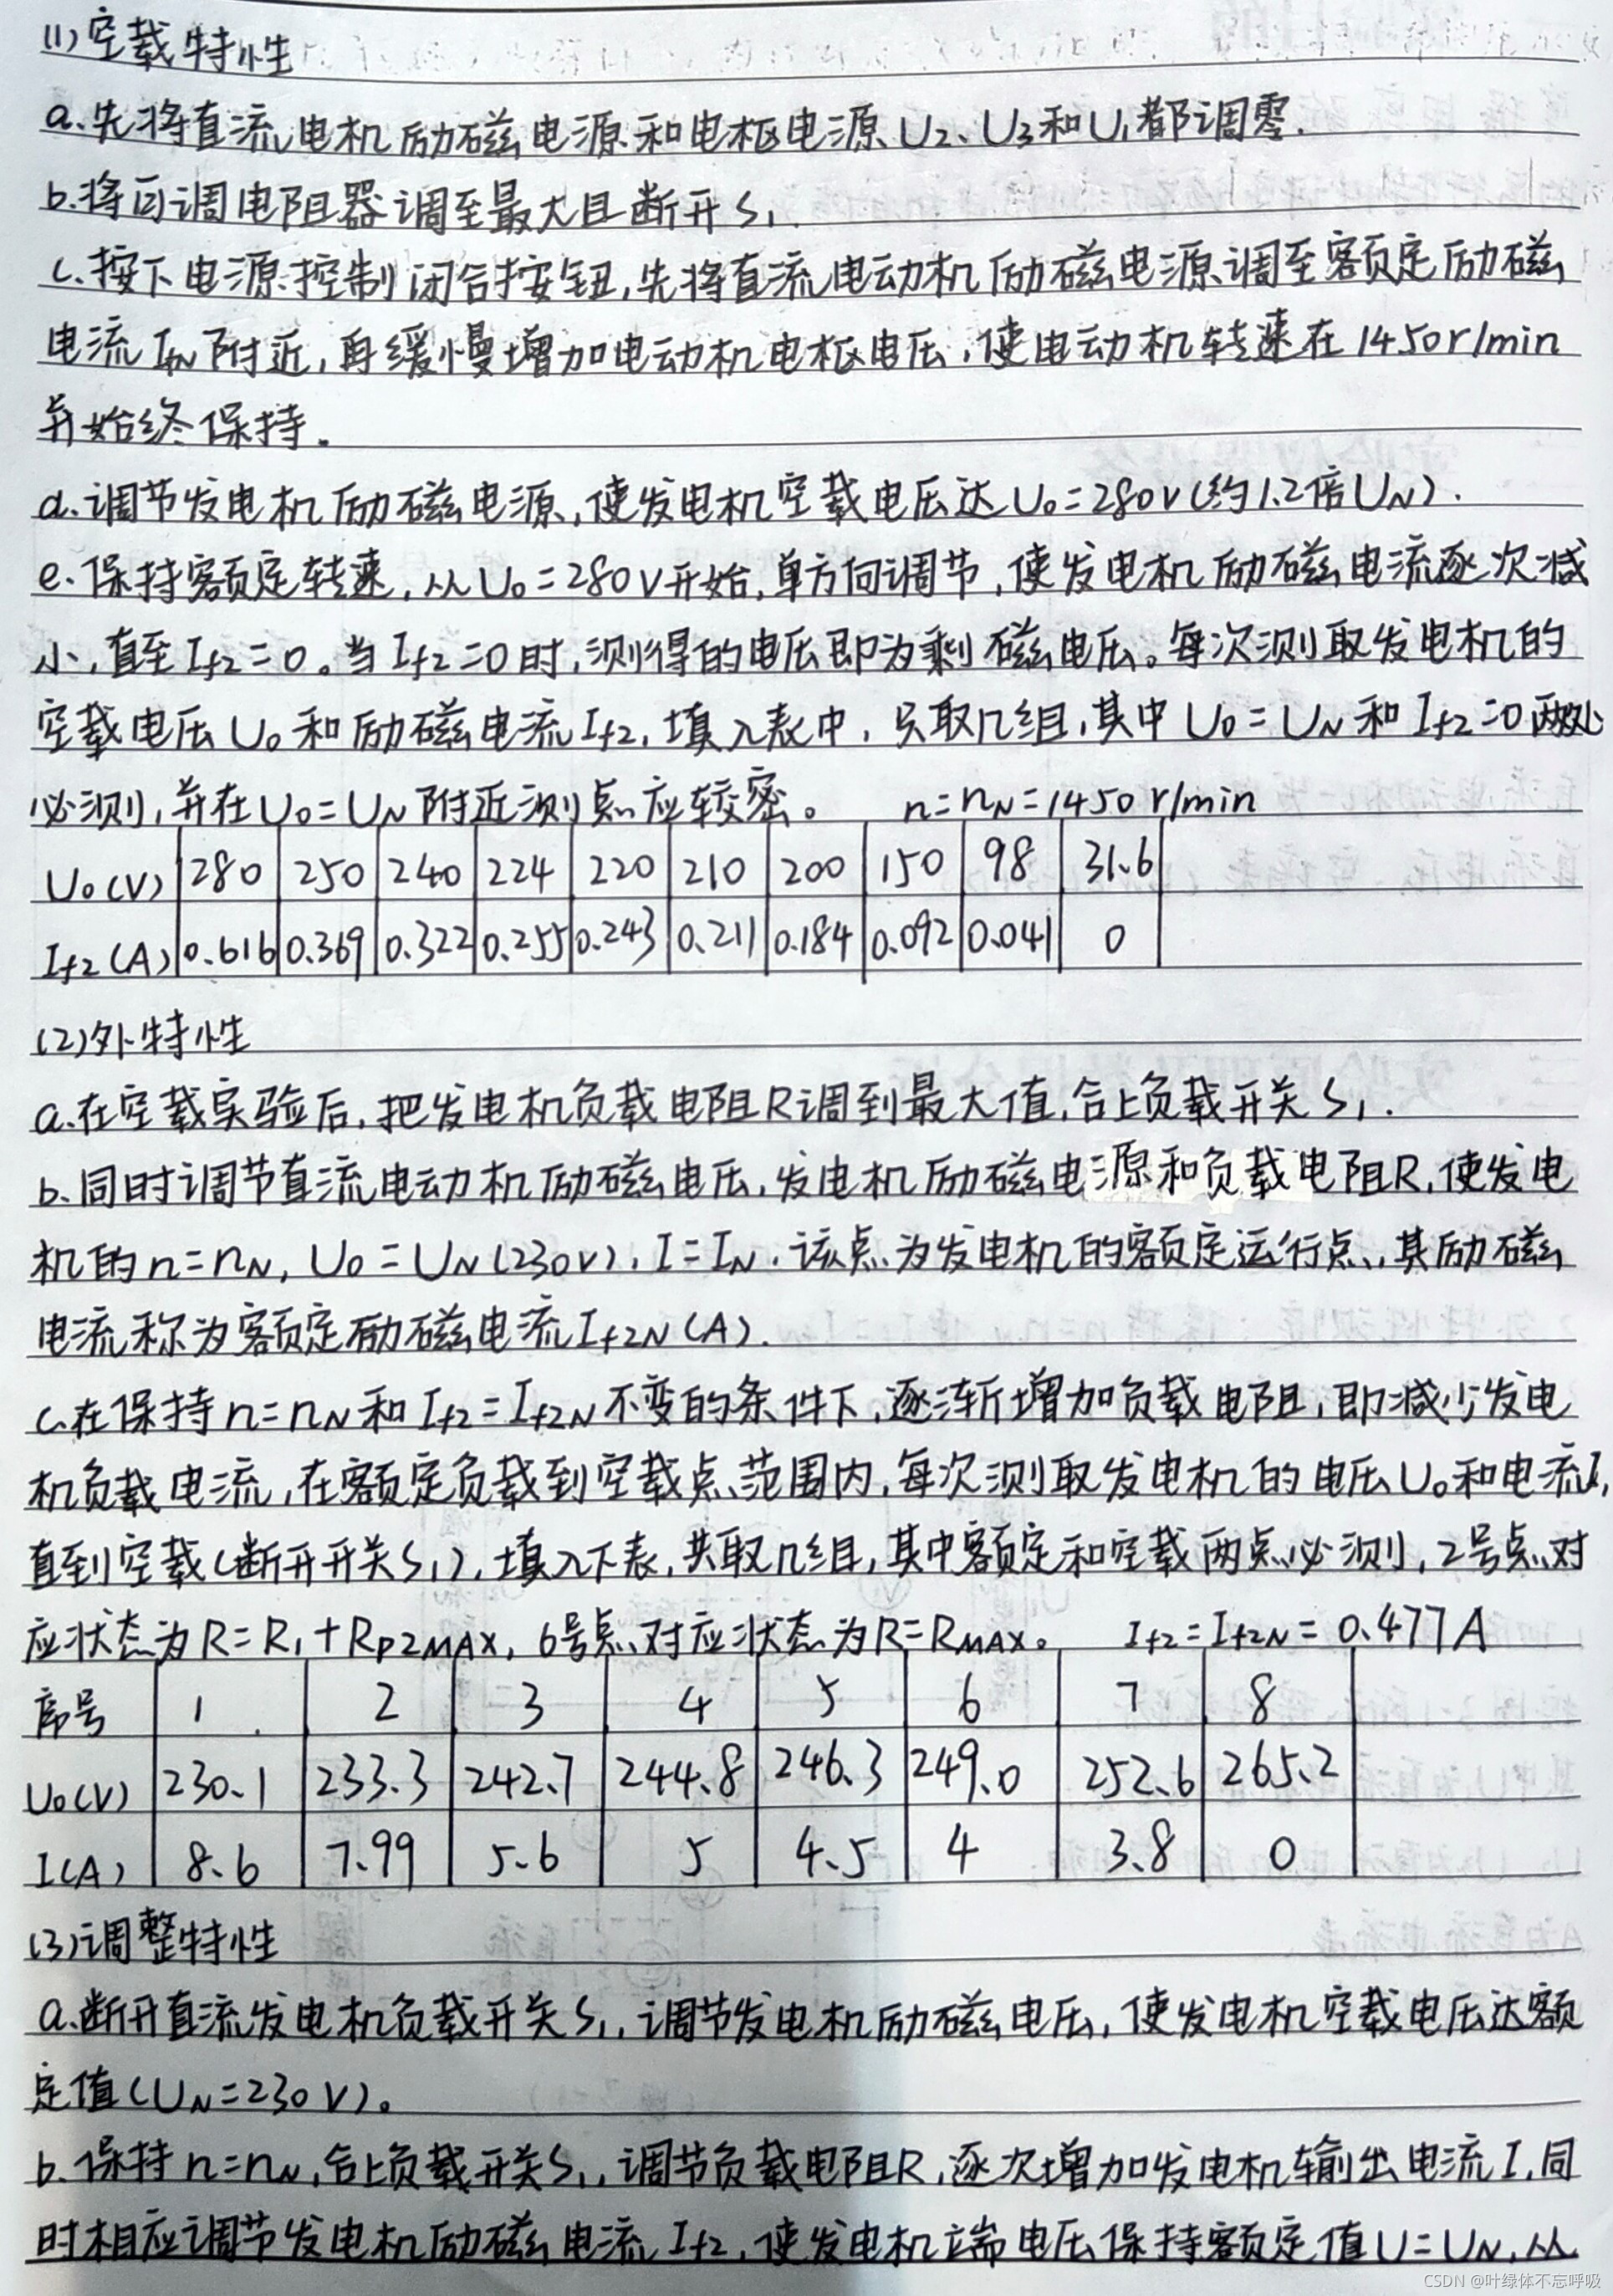 (1)空载特性
a.先将直流电机励磁电源和电枢电源U₂、U₃和U₁都调零.
b.将可调电阻器调至最大且断开S₁.
c.按下电源控制闭合按钮,先将直流电动机励磁电源调至额定励磁
电流I_fN附近,再缓慢增加电动机电枢电压,使电动机转速在1450r/min
并始终保持。
d.调节发电机励磁电源,使发电机空载电压达U₀=280V(约1.2倍U_N).
e.保持额定转速,从U₀=280V开始,单方向调节,使发电机励磁电流逐次减
小,直至I_f2=0。当I_f2=0时,测得的电压即为剩磁电压。每次测取发电机的
空载电压U₀和励磁电流I_f2,填入表中,只取几组,其中U₀=U_N和I_f2=0两处
必测,并在U₀=U_N附近测点应较密。 n=n_N=1450r/min
U₀(V) 280 250 240 224 220 210 200 150 98 31.6
I_f2(A) 0.616 0.369 0.322 0.255 0.243 0.211 0.184 0.092 0.041 0
(2)外特性
a.在空载实验后,把发电机负载电阻R调到最大值,合上负载开关S₁.
b.同时调节直流电动机励磁电压,发电机励磁电源和负载电阻R,使发电
机的n=n_N,U₀=U_N(230V),I=I_N.该点为发电机的额定运行点,其励磁
电流称为额定励磁电流I_f2N(A).
c.在保持n=n_N和I_f2=I_f2N不变的条件下,逐渐增加负载电阻,即减少发电
机负载电流,在额定负载到空载点范围内,每次测取发电机的电压U₀和电流I,
直到空载(断开开关S₁),填入下表,共取几组,其中额定和空载两点必测,2号点对
应状态为R=R₁+R_P2MAX,6号点对应状态为R=R_MAX。 I_f2=I_f2N=0.477A
序号 1 2 3 4 5 6 7 8
U₀(V) 230.1 233.3 242.7 244.8 246.3 249.0 252.6 265.2
I(A) 8.6 7.99 5.6 5 4.5 4 3.8 0
(3)调整特性
a.断开直流发电机负载开关S₁,调节发电机励磁电压,使发电机空载电压达额
定值(U_N=230V)。
b.保持n=n_N,合上负载开关S₁,调节负载电阻R,逐次增加发电机输出电流I,同
时相应调节发电机励磁电流I_f2,使发电机端电压保持额定值U=U_N,从
CSDN @叶绿体不忘呼吸